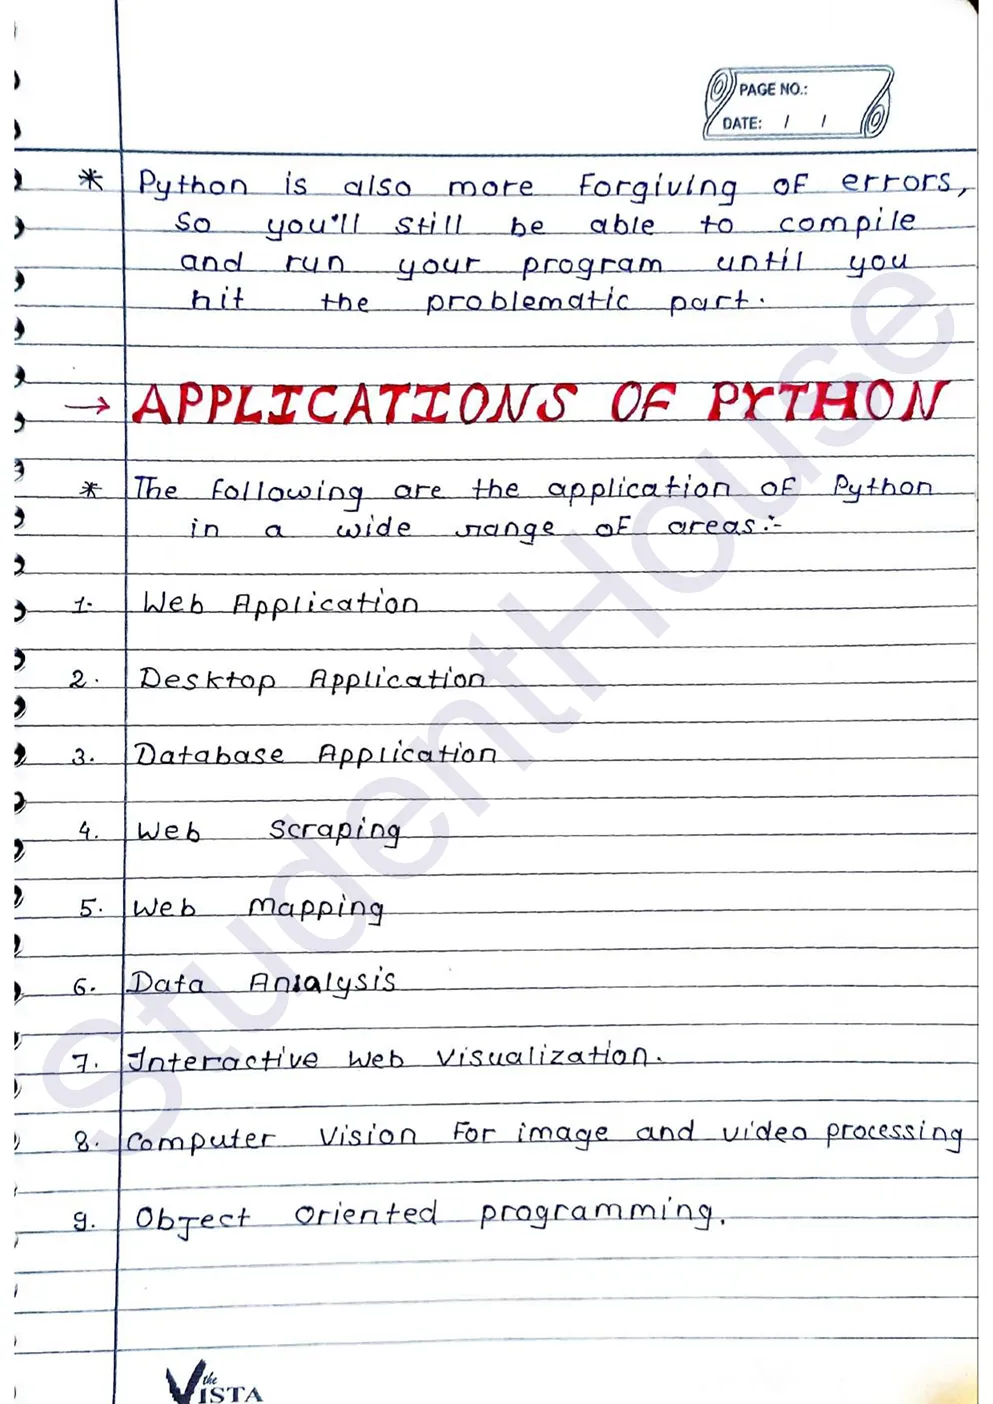 PAGE NO.:
DATE: / /
* Python is also more forgiving of errors,
so you'll still be able to compile
and run your program until you
hit the problematic part.
→ APPLICATIONS OF PYTHON
* The following are the application of Python
in a wide range of areas:-
1. Web Application
2. Desktop Application
3. Database Application
4. Web Scraping
5. Web mapping
6. Data Analysis
7. Interactive Web Visualization.
8. Computer Vision For image and video processing
9. Object Oriented programming.
the
VISTA
StudentHouse